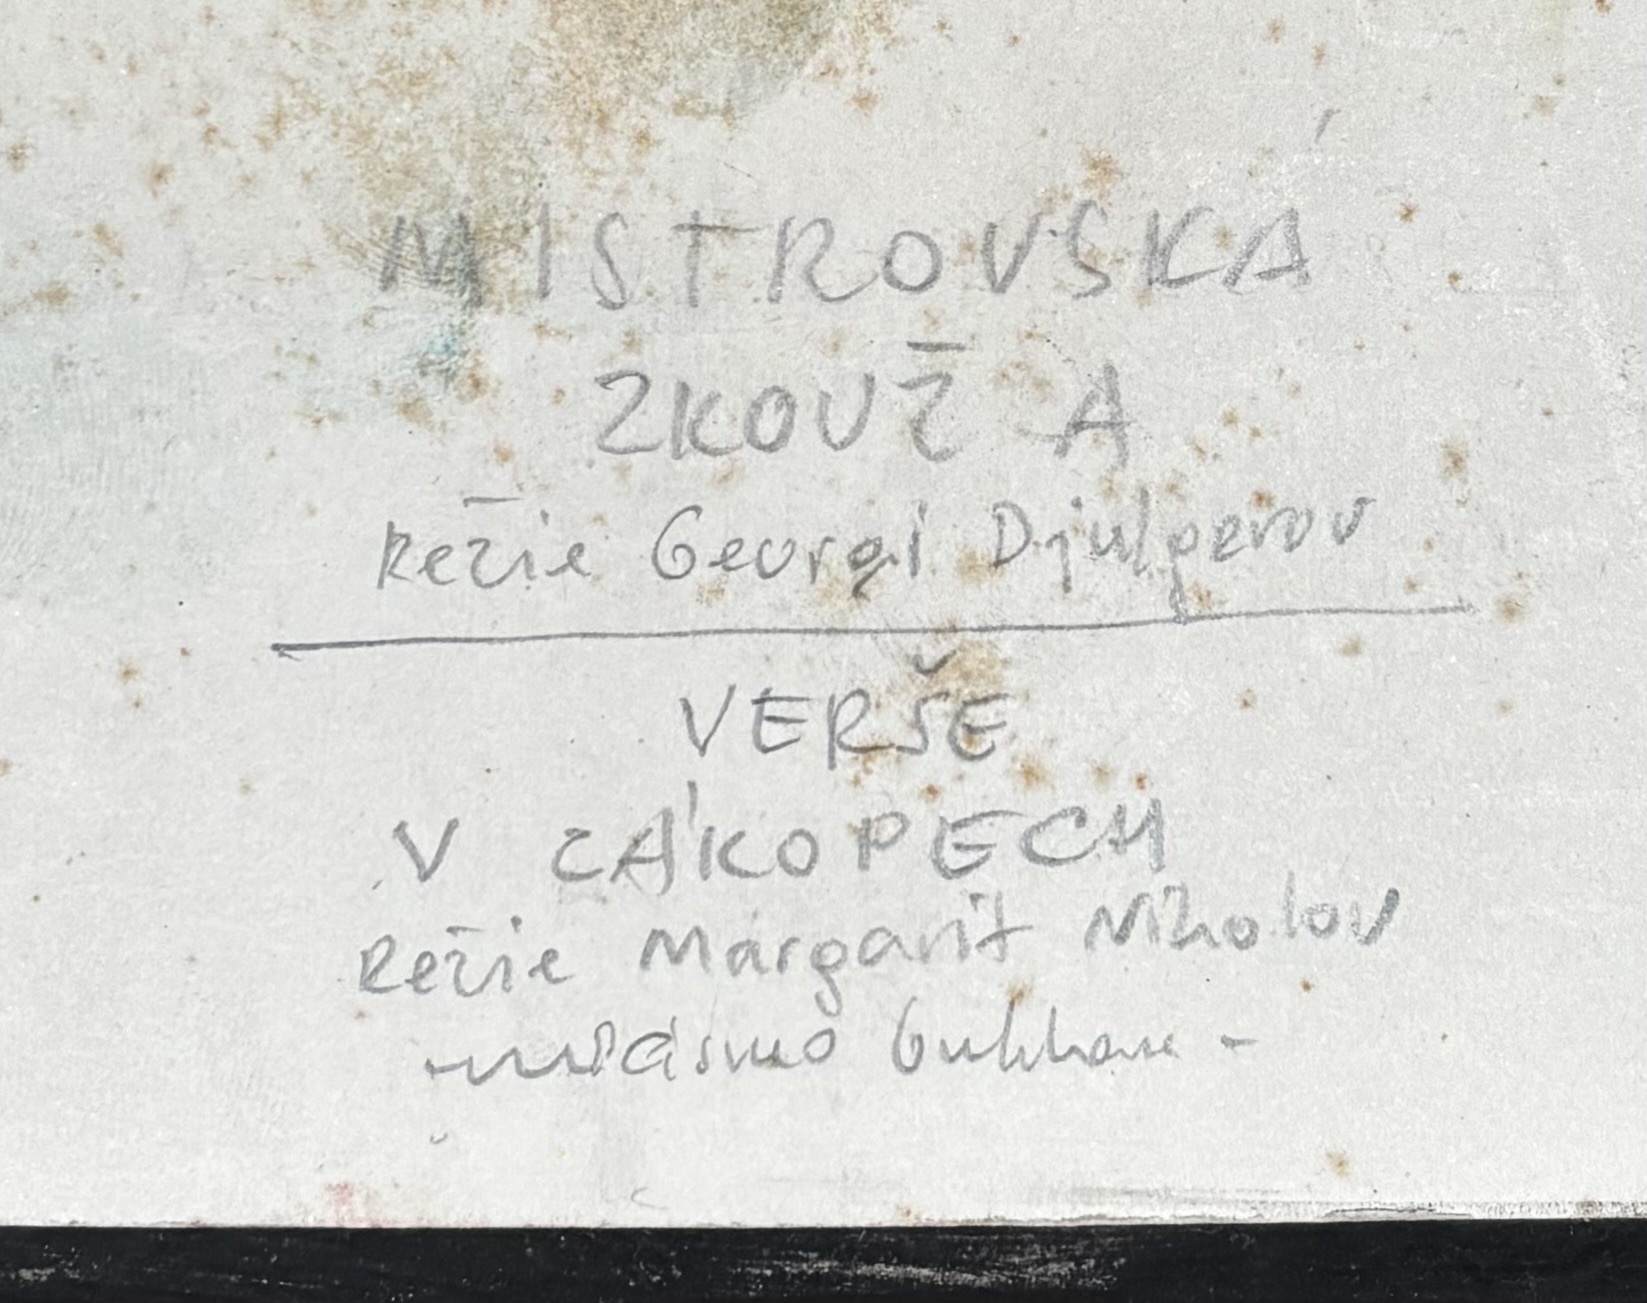 MISTROVSKÁ
ZKOUŽ A
Režie Georgi Djulgerov
VERŠE
V CÁKOPECH
Režie Margarit Nikolov